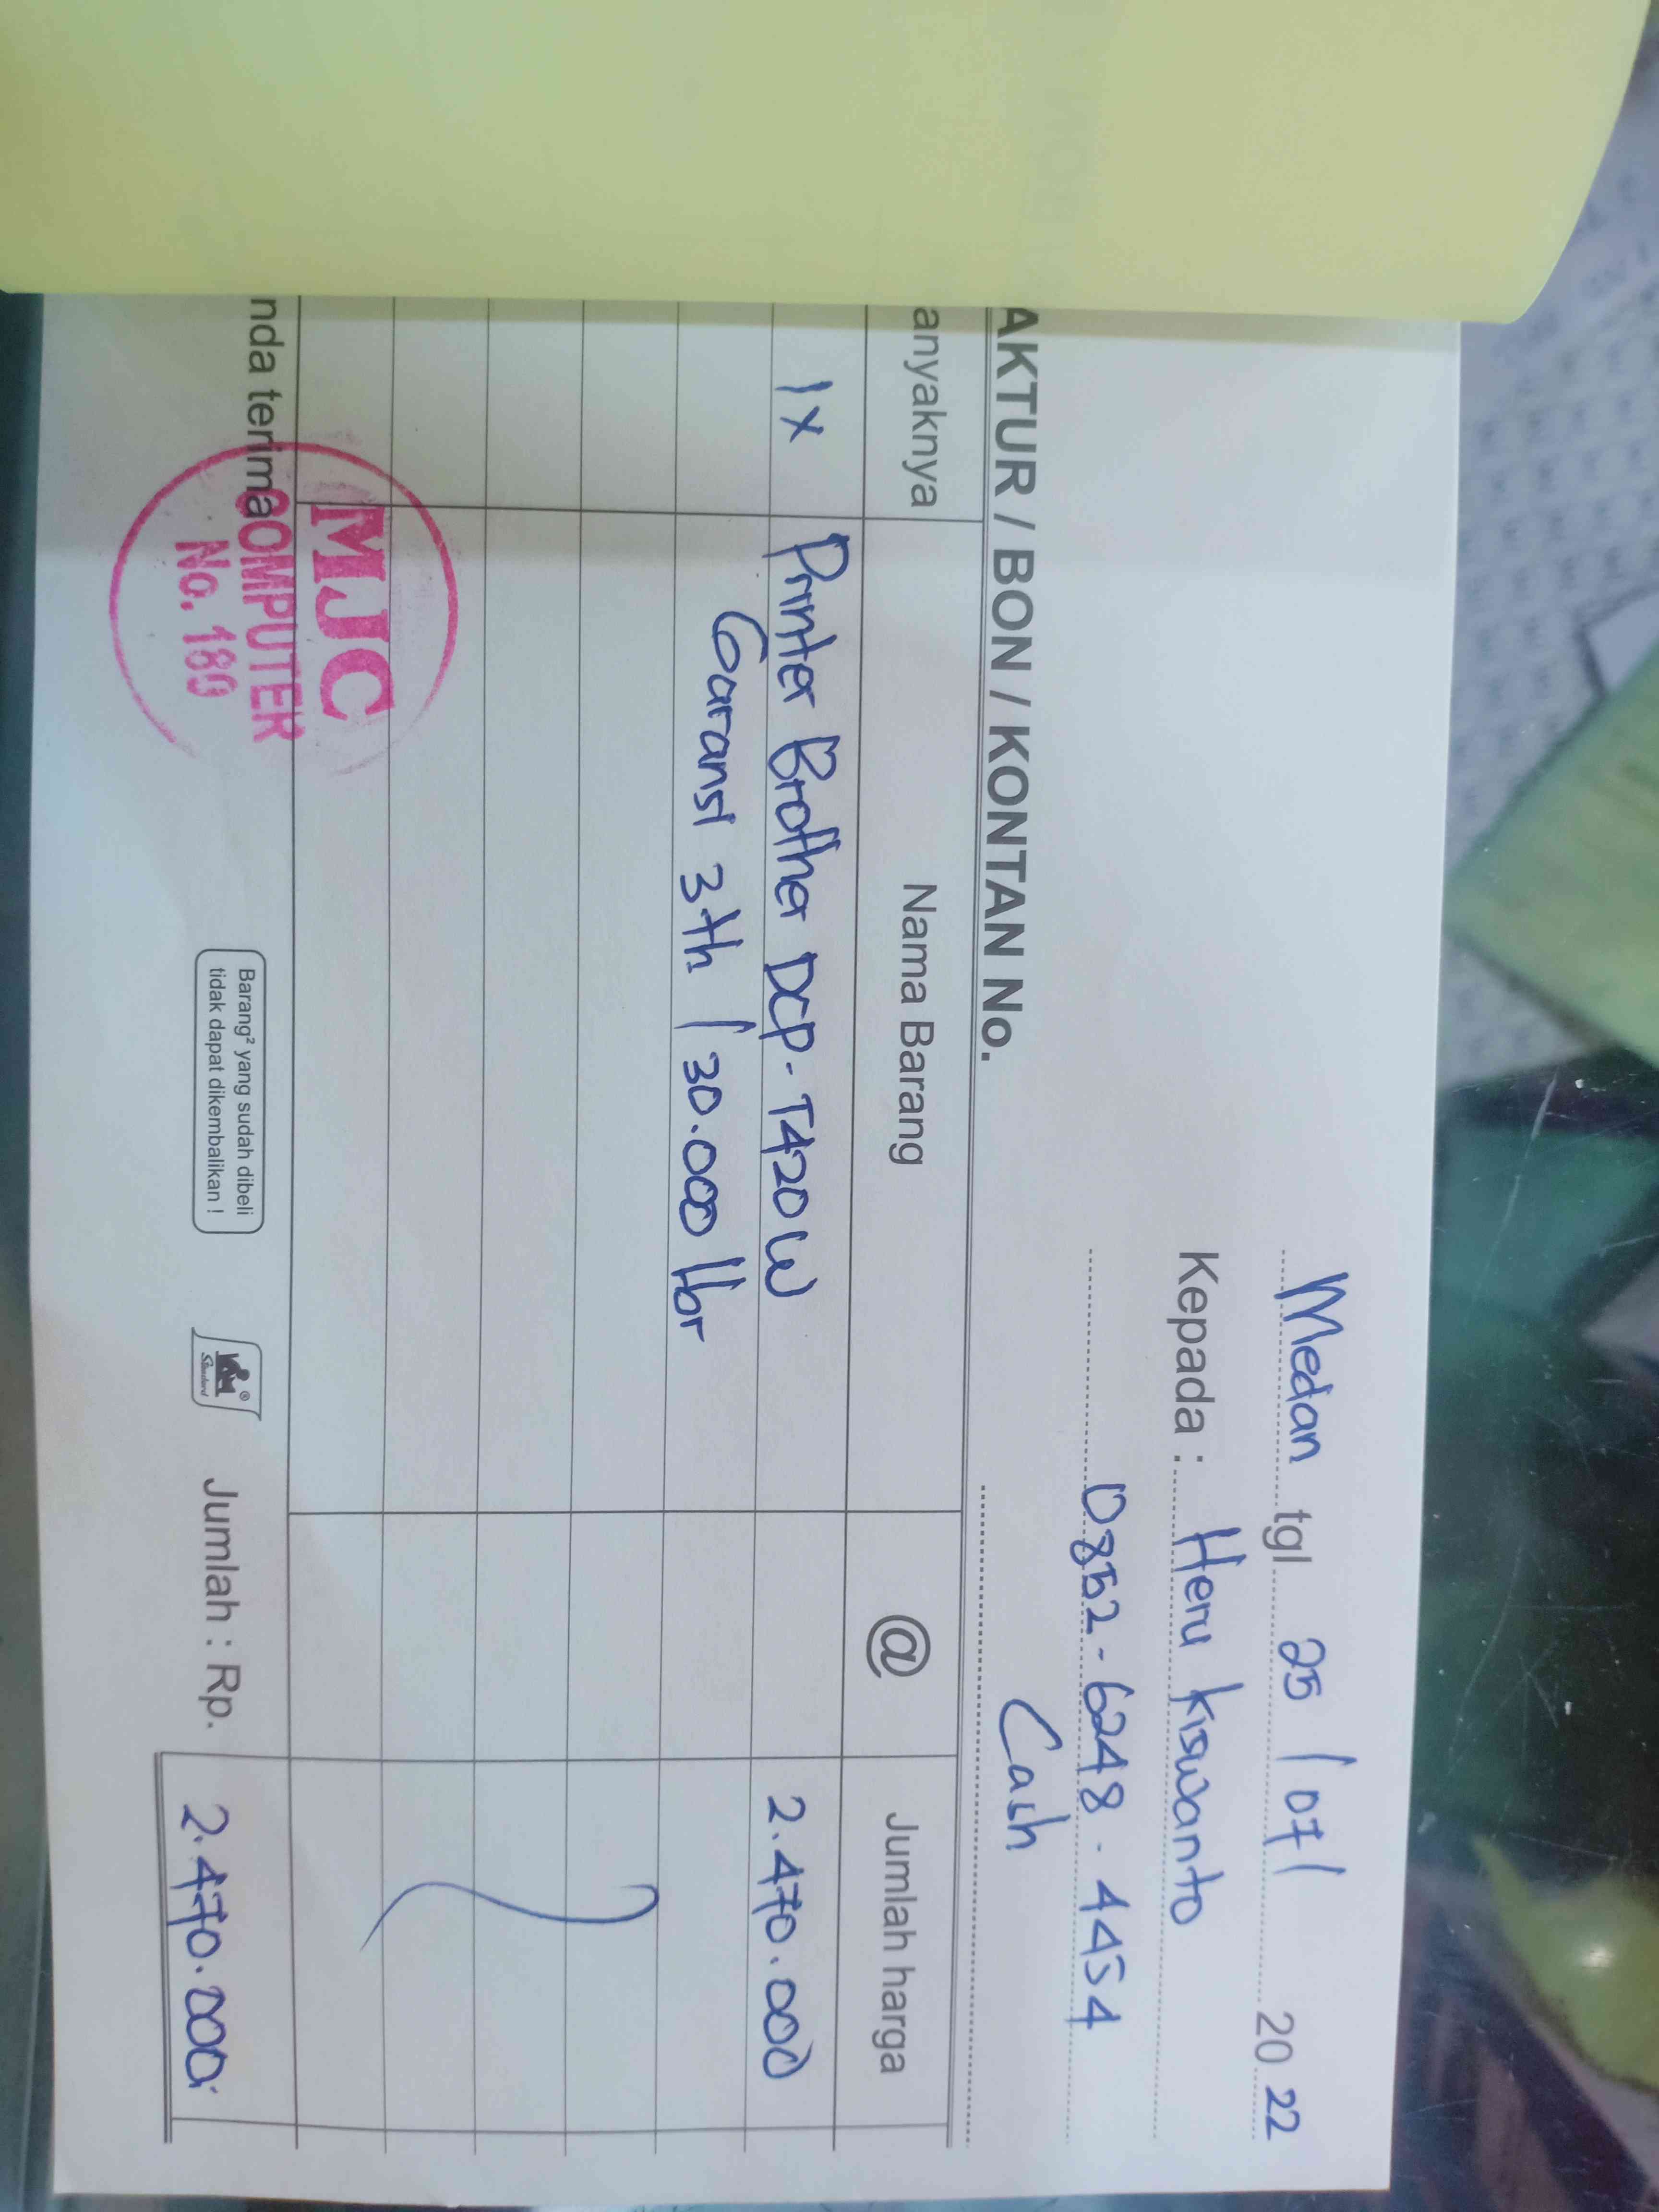 Medan tgl 25 / 07 / 20 22
Kepada : Heru Kiswanto
0852-6248.4454
AKTUR / BON / KONTAN No.
Cash
anyaknya Nama Barang @ Jumlah harga
1x Printer Brother DCP-T420W 2.470.000
Garansi 3th / 30.000 lbr
nda terima
MJC
COMPUTER
No. 180
Barang² yang sudah dibeli
tidak dapat dikembalikan !
Standard
Jumlah : Rp. 2.470.000